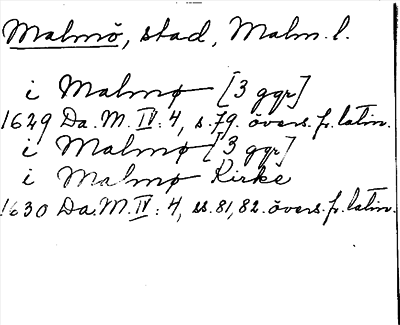 Malmö, stad, Malm. l.
i Malmø [3 ggr]
1629 Da. M. IV: 4, s. 79. övers. fr. latin.
i Malmø [3 ggr]
i Malmø Kirke
1630 Da. M. IV: 4, ss. 81, 82. övers. fr. latin.